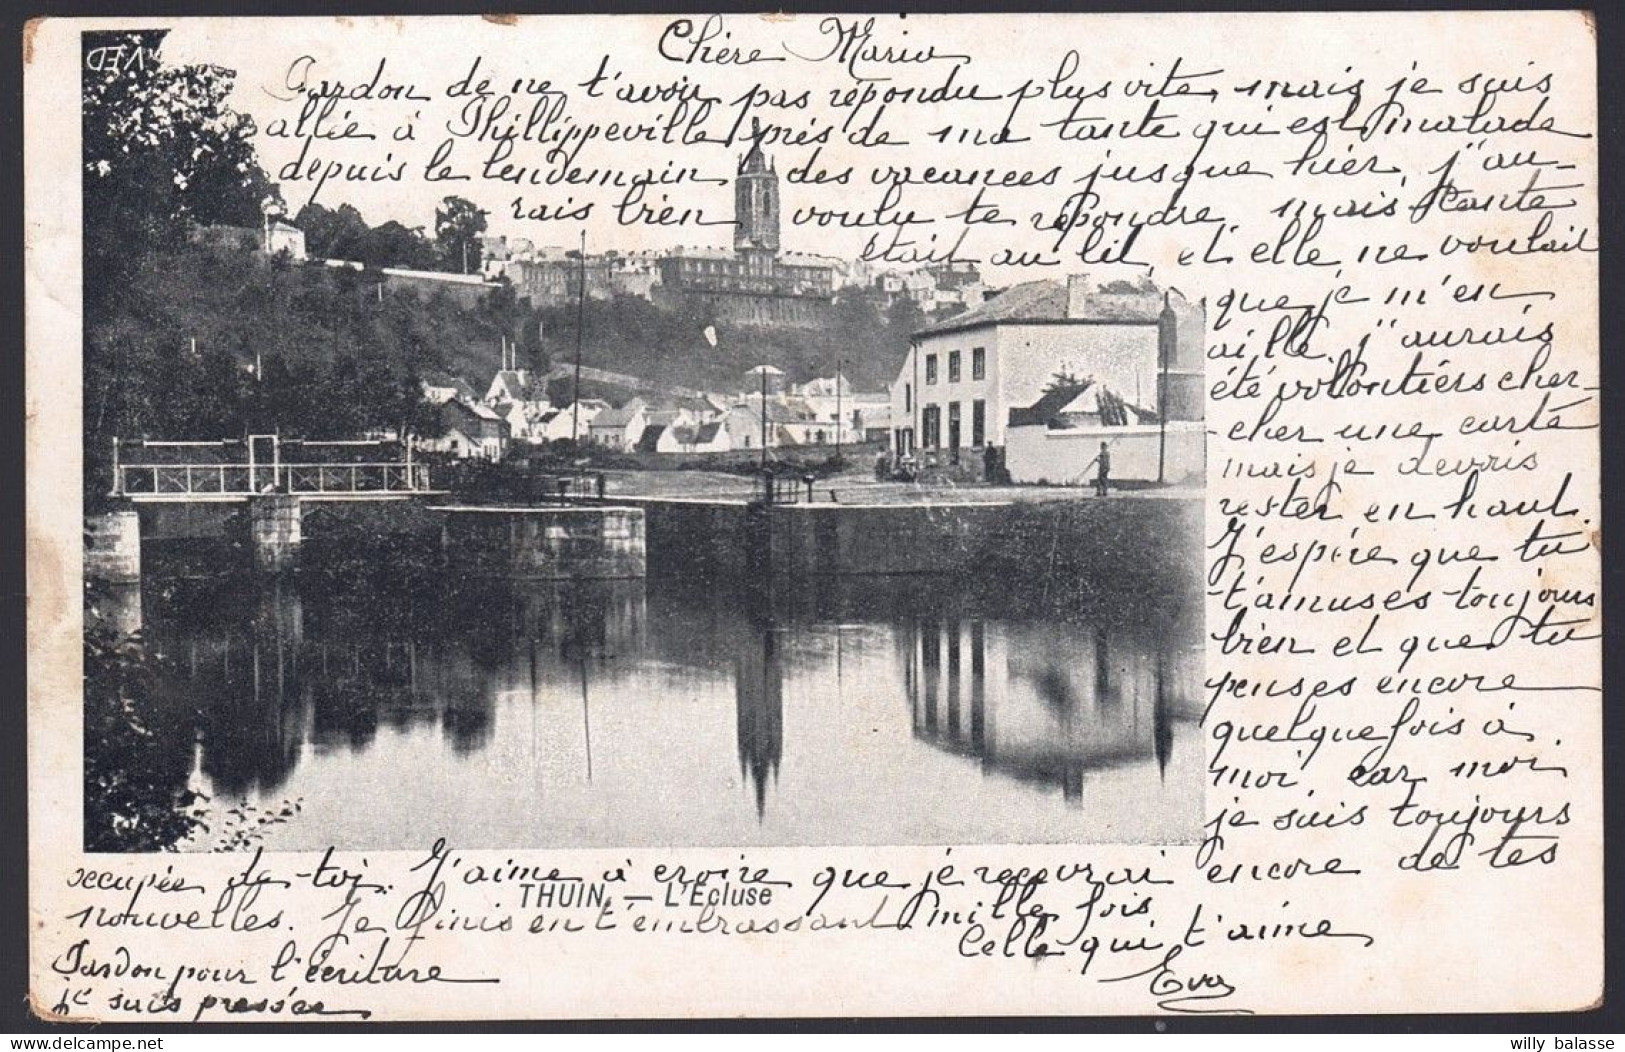 VED
Chère Maria
Pardon de ne t'avoir pas répondu plus vite, mais je suis
allée à Phillippeville près de ma tante qui est malade
depuis le lendemain des vacances jusque hier, j'au-
rais bien voulu te répondre, mais tante
était au lit, et elle ne voulait
que je m'en
aille, j'aurais
été volontiérs cher-
-cher une carte
mais je devais
rester en haut.
J'espére que tu
t'amuses toujours
bien et que tu
penses encore
quelquefois à
moi, car moi
je suis toujours
occupée de toi. J'aime à croire que je recevrai encore de tes
THUIN. — L'Écluse
nouvelles. Je finis en t'embrassant mille fois
Celle qui t'aime
Eva
Pardon pour l'écriture
je suis pressée
willy balasse